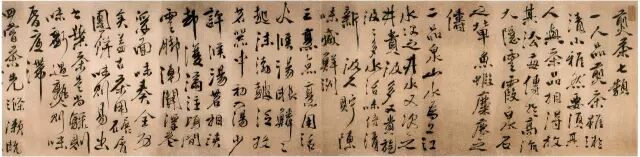 煎茶七類
一人品煎茶雖微
清小雅然要須其
人與茶品相得故
其法每傳於高流
大隱雲霞泉石
之輩魚蝦麋鹿之
儔
二品泉山水為上江
水次之井水又次之
井貴汲多又貴旋
汲汲多水活味倍清
新汲久貯陳
味減鮮冽
三烹點烹用活
火候湯眼鱗鱗
起沫浡鼓泛投
茗器中初入湯少
許候湯茗相浹
却復滿注頃間
雲腳漸開浮花
浮面味奏全功
矣蓋古茶用碾屑
團餅味則易出
今葉茶是尚驟則
味虧過熟則味
昏底滯
四嘗茶先滌漱既